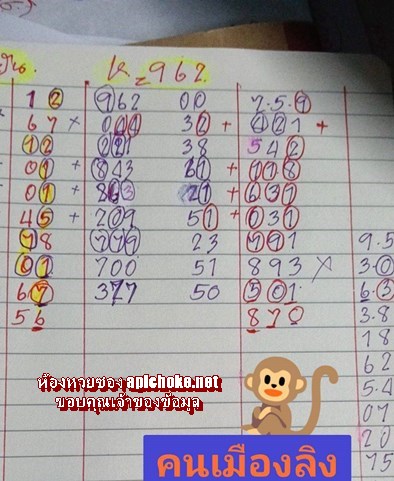 วัน. K=962
12 962 00 7.5.9
67 × 044 32 + 421 +
12 221 38 542
01 + 843 61 + 118
01 + 863 21 + 631
45 + 209 51 + 031
78 779 23 791 9.5
01 700 51 893 × 3 0
67 377 50 501 6.3
56 870 3.8
18
62
ห้องหวยซอง apichoke.net 5.4
ขอบคุณเจ้าของข้อมูล 07
20
คนเมืองลิง 75